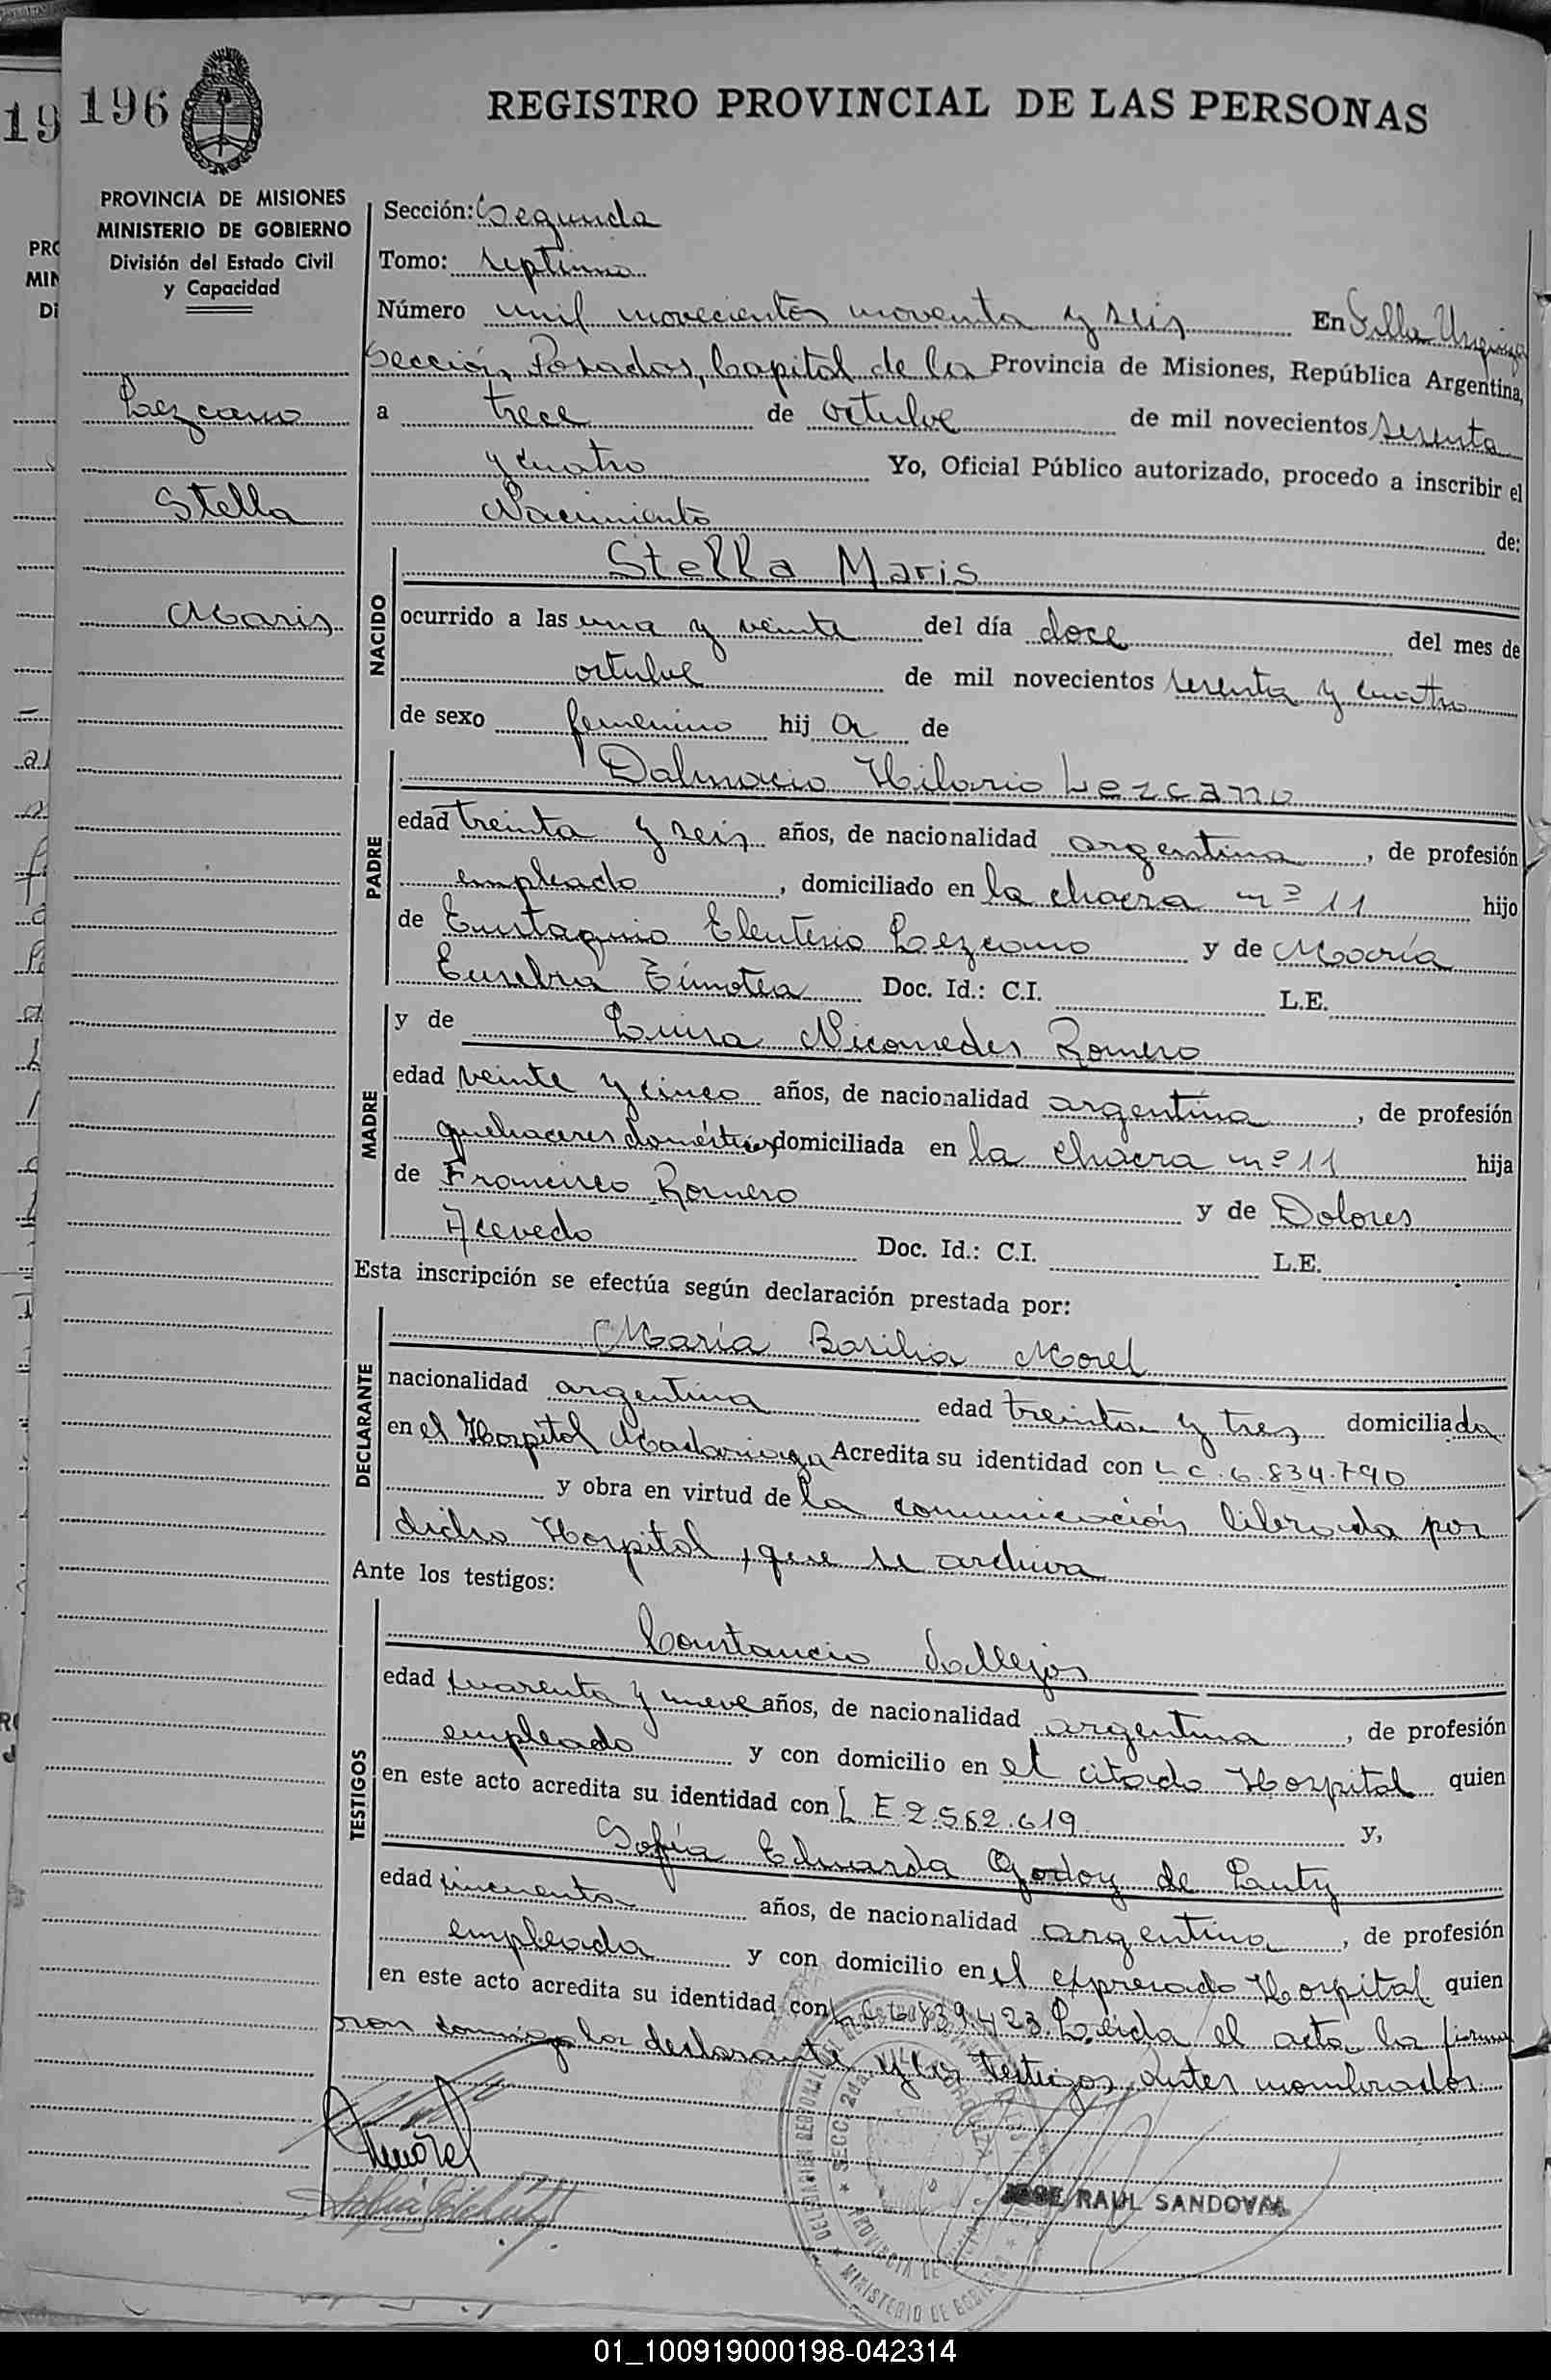 196
REGISTRO PROVINCIAL DE LAS PERSONAS
PROVINCIA DE MISIONES
MINISTERIO DE GOBIERNO
División del Estado Civil
y Capacidad
Lezcano
Stella
Maris
Sección: Segunda
Tomo: septimo
Número mil novecientos noventa y seis En Villa Urquiza
Sección, Posadas, Capital de la Provincia de Misiones, República Argentina,
a trece de octubre de mil novecientos sesenta
y cuatro Yo, Oficial Público autorizado, procedo a inscribir el
Nacimiento de:
NACIDO
Stella Maris
ocurrido a las una y veinte del día doce del mes de
octubre de mil novecientos sesenta y cuatro
de sexo femenino hij a de
PADRE
Dalmacio Hilario Lezcano
edad treinta y seis años, de nacionalidad argentina, de profesión
empleado, domiciliado en la chacra nº 11 hijo
de Eustaquio Eleuterio Lezcano y de María
Eusebia Timotea Doc. Id.: C.I. L.E.
MADRE
y de Luisa Nicomedes Romero
edad veinte y cinco años, de nacionalidad argentina, de profesión
quehaceres domésticos domiciliada en la chacra nº 11 hija
de Francisco Romero y de Dolores
Acevedo Doc. Id.: C.I. L.E.
Esta inscripción se efectúa según declaración prestada por:
DECLARANTE
María Basilia Morel
nacionalidad argentina edad treinta y tres domiciliada
en el Hospital Madariaga Acredita su identidad con L C. 6.834.790
y obra en virtud de la comunicación librada por
dicho Hospital, que se archiva
Ante los testigos:
TESTIGOS
Constancio Vallejos
edad cuarenta y nueve años, de nacionalidad argentina, de profesión
empleado y con domicilio en el citado Hospital quien
en este acto acredita su identidad con L E 2.562.619 y,
Sofía Eduarda Godoy de Lauty
edad cincuenta años, de nacionalidad argentina, de profesión
empleada y con domicilio en el expresado Hospital quien
en este acto acredita su identidad con L.C. 6.839.423. Leída el acta, la firma
ron conmigo la declarante y los testigos antes nombrados
Morel
JOSE RAUL SANDOVAL
SECC. 2da.
MINISTERIO DE GOBIERNO
01_100919000198-042314